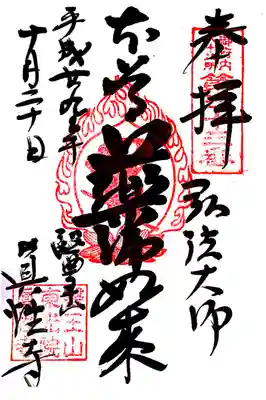 奉拝
弘法大師
本尊薬師如来
醫王山
眞性寺
平成廿九年
十月二十日